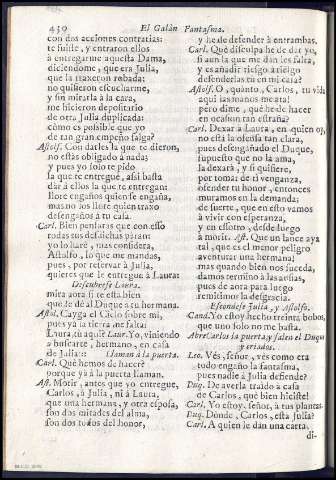 430 El Galàn Fantasma.
con dos acciones contrarias:
te fuiste, y entraron ellos
à entregarme aquesta Dama,
diciendome, que era Julia,
que la traxeron robada:
no quisieron escucharme,
y sin mirarla à la cara,
me hicieron depositario
de otra Julia duplicada:
còmo es possible que yo
de tan gran empeño salga?
Astolf. Con darles la que te dieron,
no estàs obligado à nada;
y pues yo solo te pido
la que te entreguè, assi basta
dàr à ellos la que te entregan:
llore engaños quien se engaña,
mas no los llore quien traxo
desengaños à tu casa.
Carl. Bien pensaras que con esso
todas sus desdichas paran:
yo lo harè, mas considera,
Astolfo, lo que me mandas,
pues, por reservar à Julia,
quieres que le entregue à Laura:
Descubrese Laura.
mira aora si te està bien
que le dè al Duque à tu hermana.
Astol. Cayga el Cielo sobre mi,
pues ya la tierra me falta:
Laura de aqui? Laur. Yo, viniendo
a buscarte, hermano, en casa
de Julia::: Llaman à la puerta.
Carl. Què hemos de hacer?
porque yà à la puerta llaman.
Ast. Morir, antes que yo entregue,
Carlos, à Julia, ni à Laura,
que una hermana, y otra esposa,
son dos mitades del alma,
son dos todos del honor,
y he de defender à entrambas.
Carl. Què disculpa he de dàr yo,
si aun la que me dàn les falta,
y es añadir riesgo à riesgo
defenderlas tu en mi casa?
Astolf. O, quanto, Carlos, tu vida
aqui las manos me ata!
pero dime, què he de hacer
en ocasion tan estraña?
Carl. Dexar à Laura, en quien oy
no està la ofensa tan clara,
pues desengañado el Duque,
supuesto que no la ama,
la dexarà, y si quisiere,
por tomar de ti venganza,
ofender tu honor, entonces
muramos en la demanda;
de suerte, que en esto vamos
à vivir con esperanza,
y en essotro, desde luego
à morir. Ast. Que un lance aya
tal, que es el menor peligro
aventurar una hermana!
mas quando bien nos suceda,
damos termino à las ansias,
pues de aora para luego
remitimos la desgracia.
Escondese Julia, y Astolfo.
Cand. Yo estoy hecho treinta bobos,
que uno solo no me basta.
Abre Carlos la puerta, y salen el Duque
y criados.
Leo. Vès, señor, vès como era
todo engaño la fantasma,
pues nadie à Julia defiende?
Duq. De averla traido à casa
de Carlos, què bien hiciste!
Carl. Yo estoy, señor, à tus plantas.
Duq. Donde, Carlos, està Julia?
Carl. A quien le dàn una carta,
di-